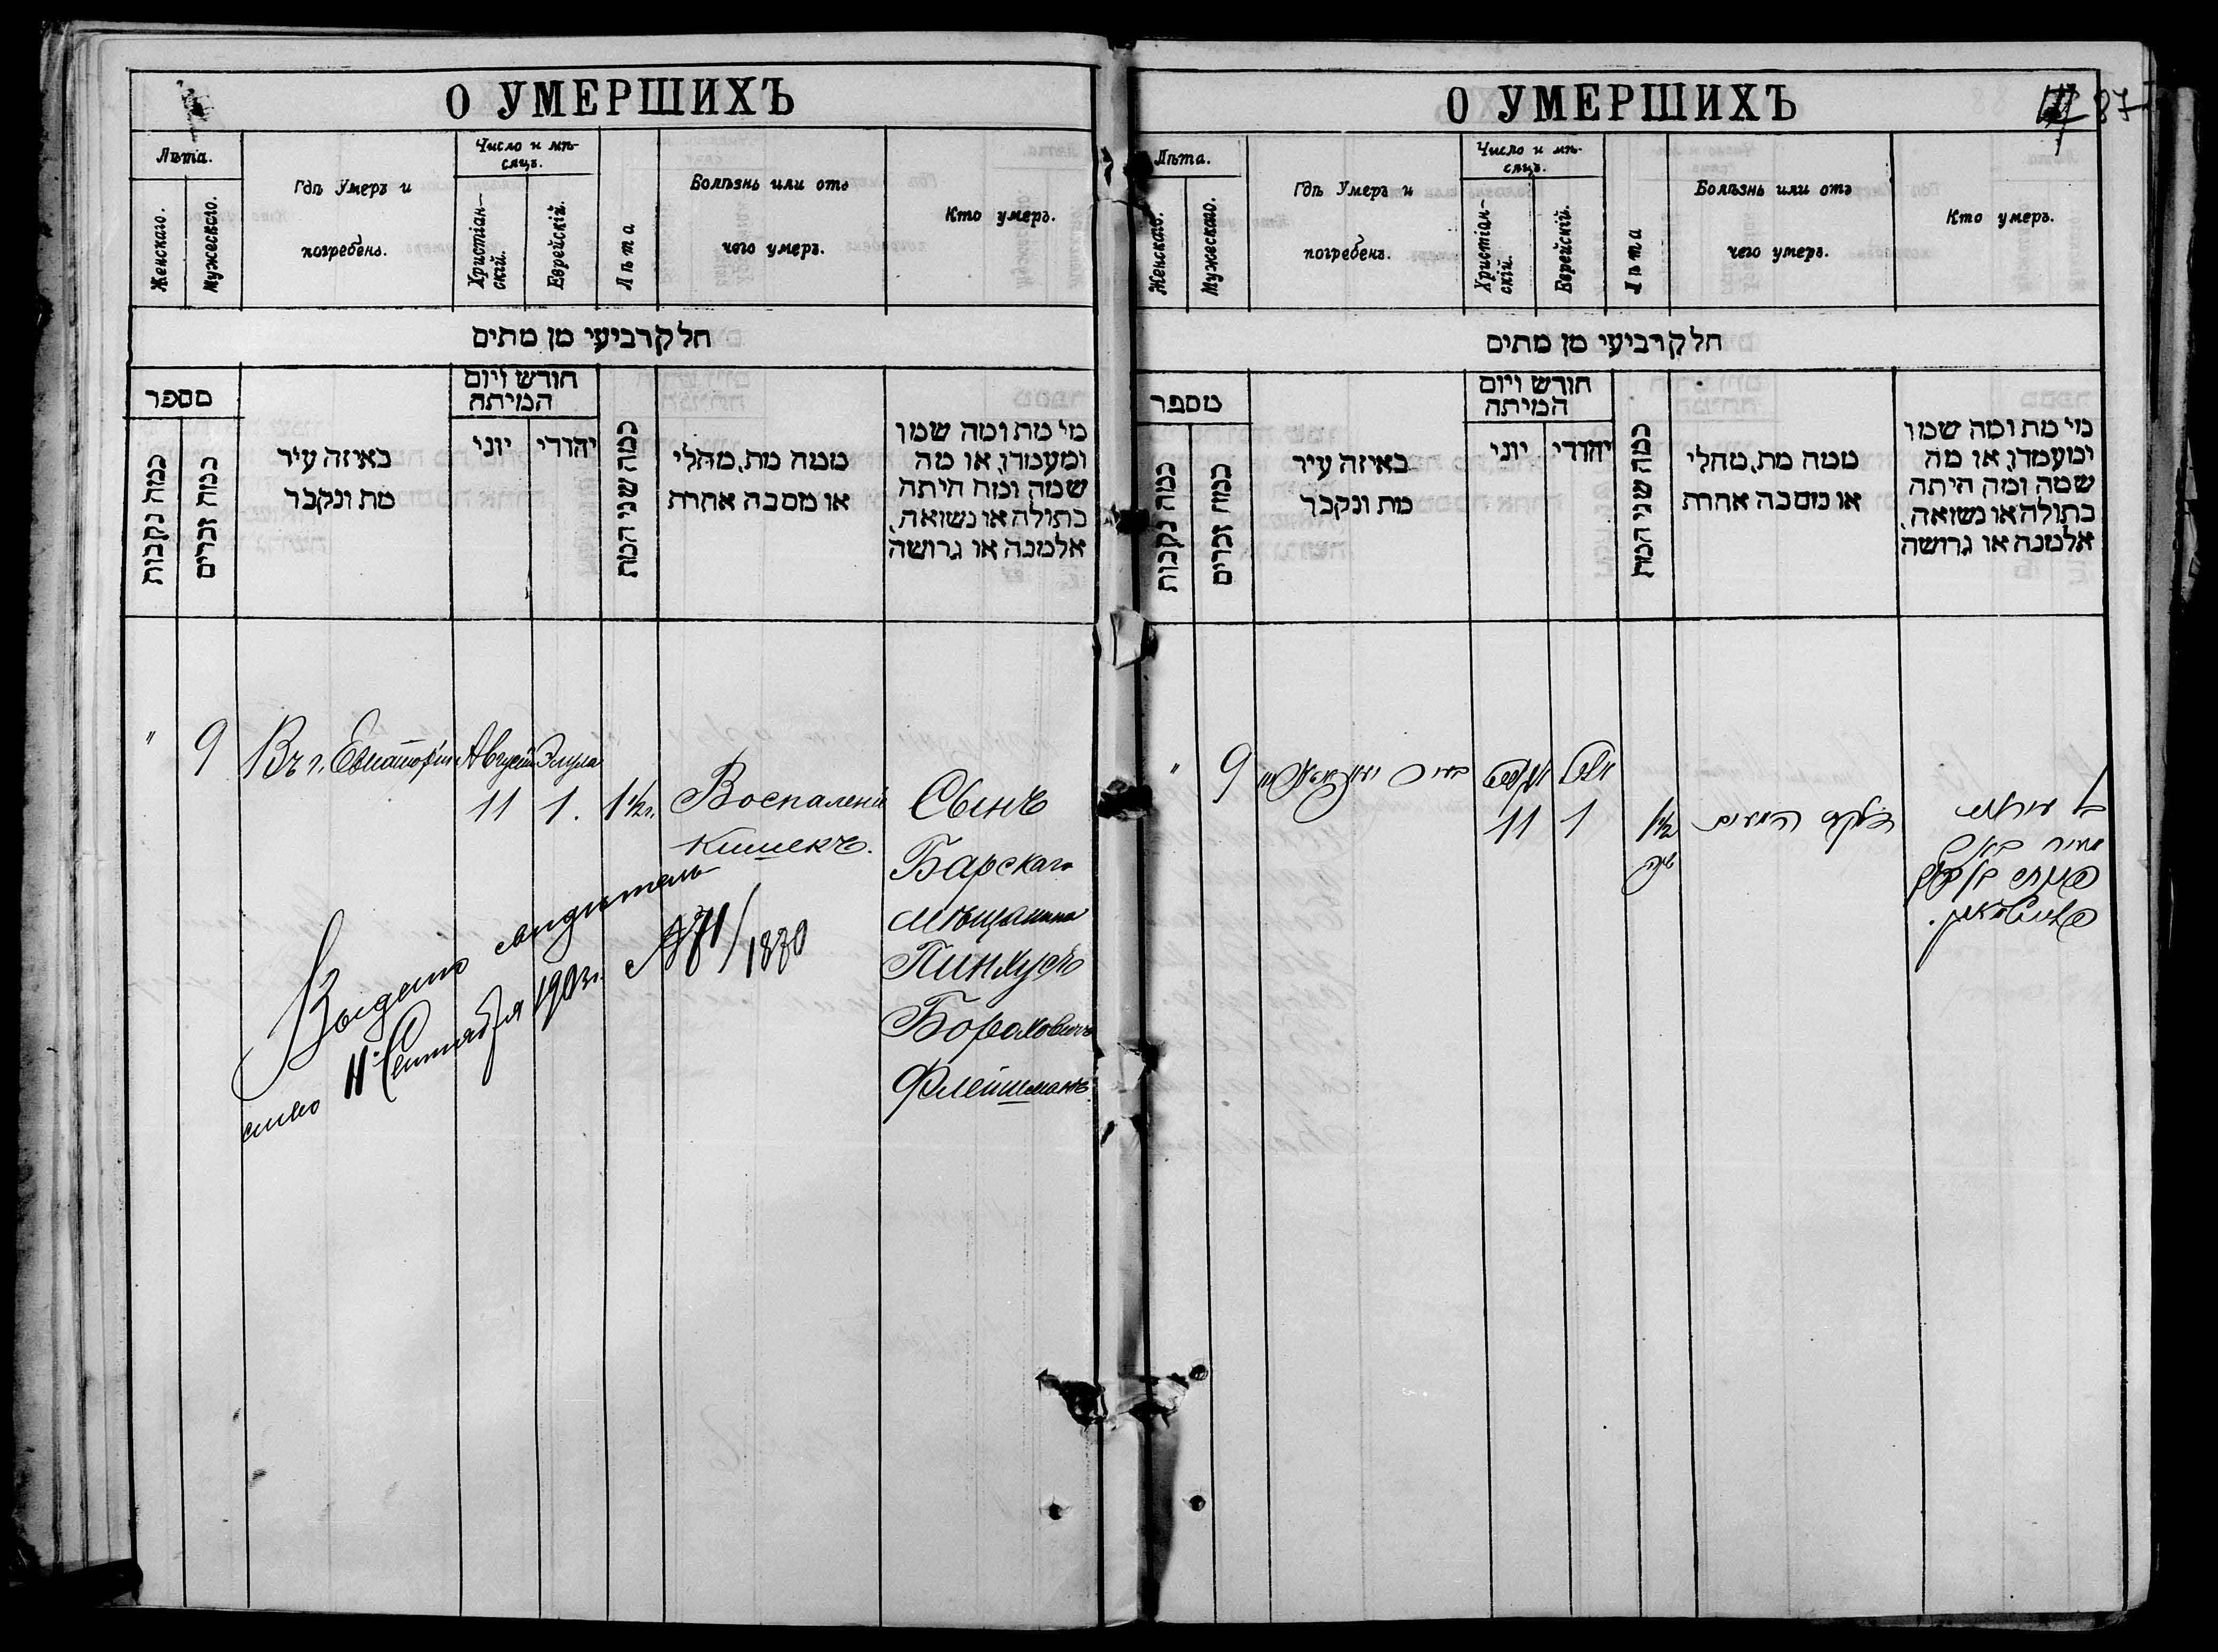 О УМЕРШИХЪ
Лѣта.
Женскаго.
Мужескаго.
Гдѣ Умеръ и
погребенъ.
Число и мѣ-
сяцъ.
Христіан-
скій.
Еврейскій.
Лѣта
Болѣзнь или отъ
чего умеръ.
Кто умеръ.
חלק רביעי מן מתים
מספר
כמה נקבות
כמה זכרים
באיזה עיר
מת ונקבר
חודש ויום
המיתה
יוני
יהודי
כמה שני המת
ממה מת, מחלי
או מסבה אחרת
מי מת ומה שמו
ומעמדו, או מה
שמה ומה היתה
בתולה או נשואה,
אלמנה או גרושה
" 9 Въ г. Евпаторіи Августа Элула
11 1. 1½ г. Воспаленіе
кишекъ.
Сынъ
Барскаго
мѣщанина
Пинхуса
Бороховича
Флейшмана
Выдано свидѣтель
ство 11 Сентября 1903 г. №
О УМЕРШИХЪ
87
Лѣта.
Женскаго.
Мужескаго.
Гдѣ Умеръ и
погребенъ.
Число и мѣ-
сяцъ.
Христіан-
скій.
Еврейскій.
Лѣта
Болѣзнь или отъ
чего умеръ.
Кто умеръ.
חלק רביעי מן מתים
מספר
כמה נקבות
כמה זכרים
באיזה עיר
מת ונקבר
חודש ויום
המיתה
יוני
יהודי
כמה שני המת
ממה מת, מחלי
או מסבה אחרת
מי מת ומה שמו
ומעמדו, או מה
שמה ומה היתה
בתולה או נשואה,
אלמנה או גרושה
" 9
אויגוסט אלול
11 1 1½
שנה
דלקת המעים